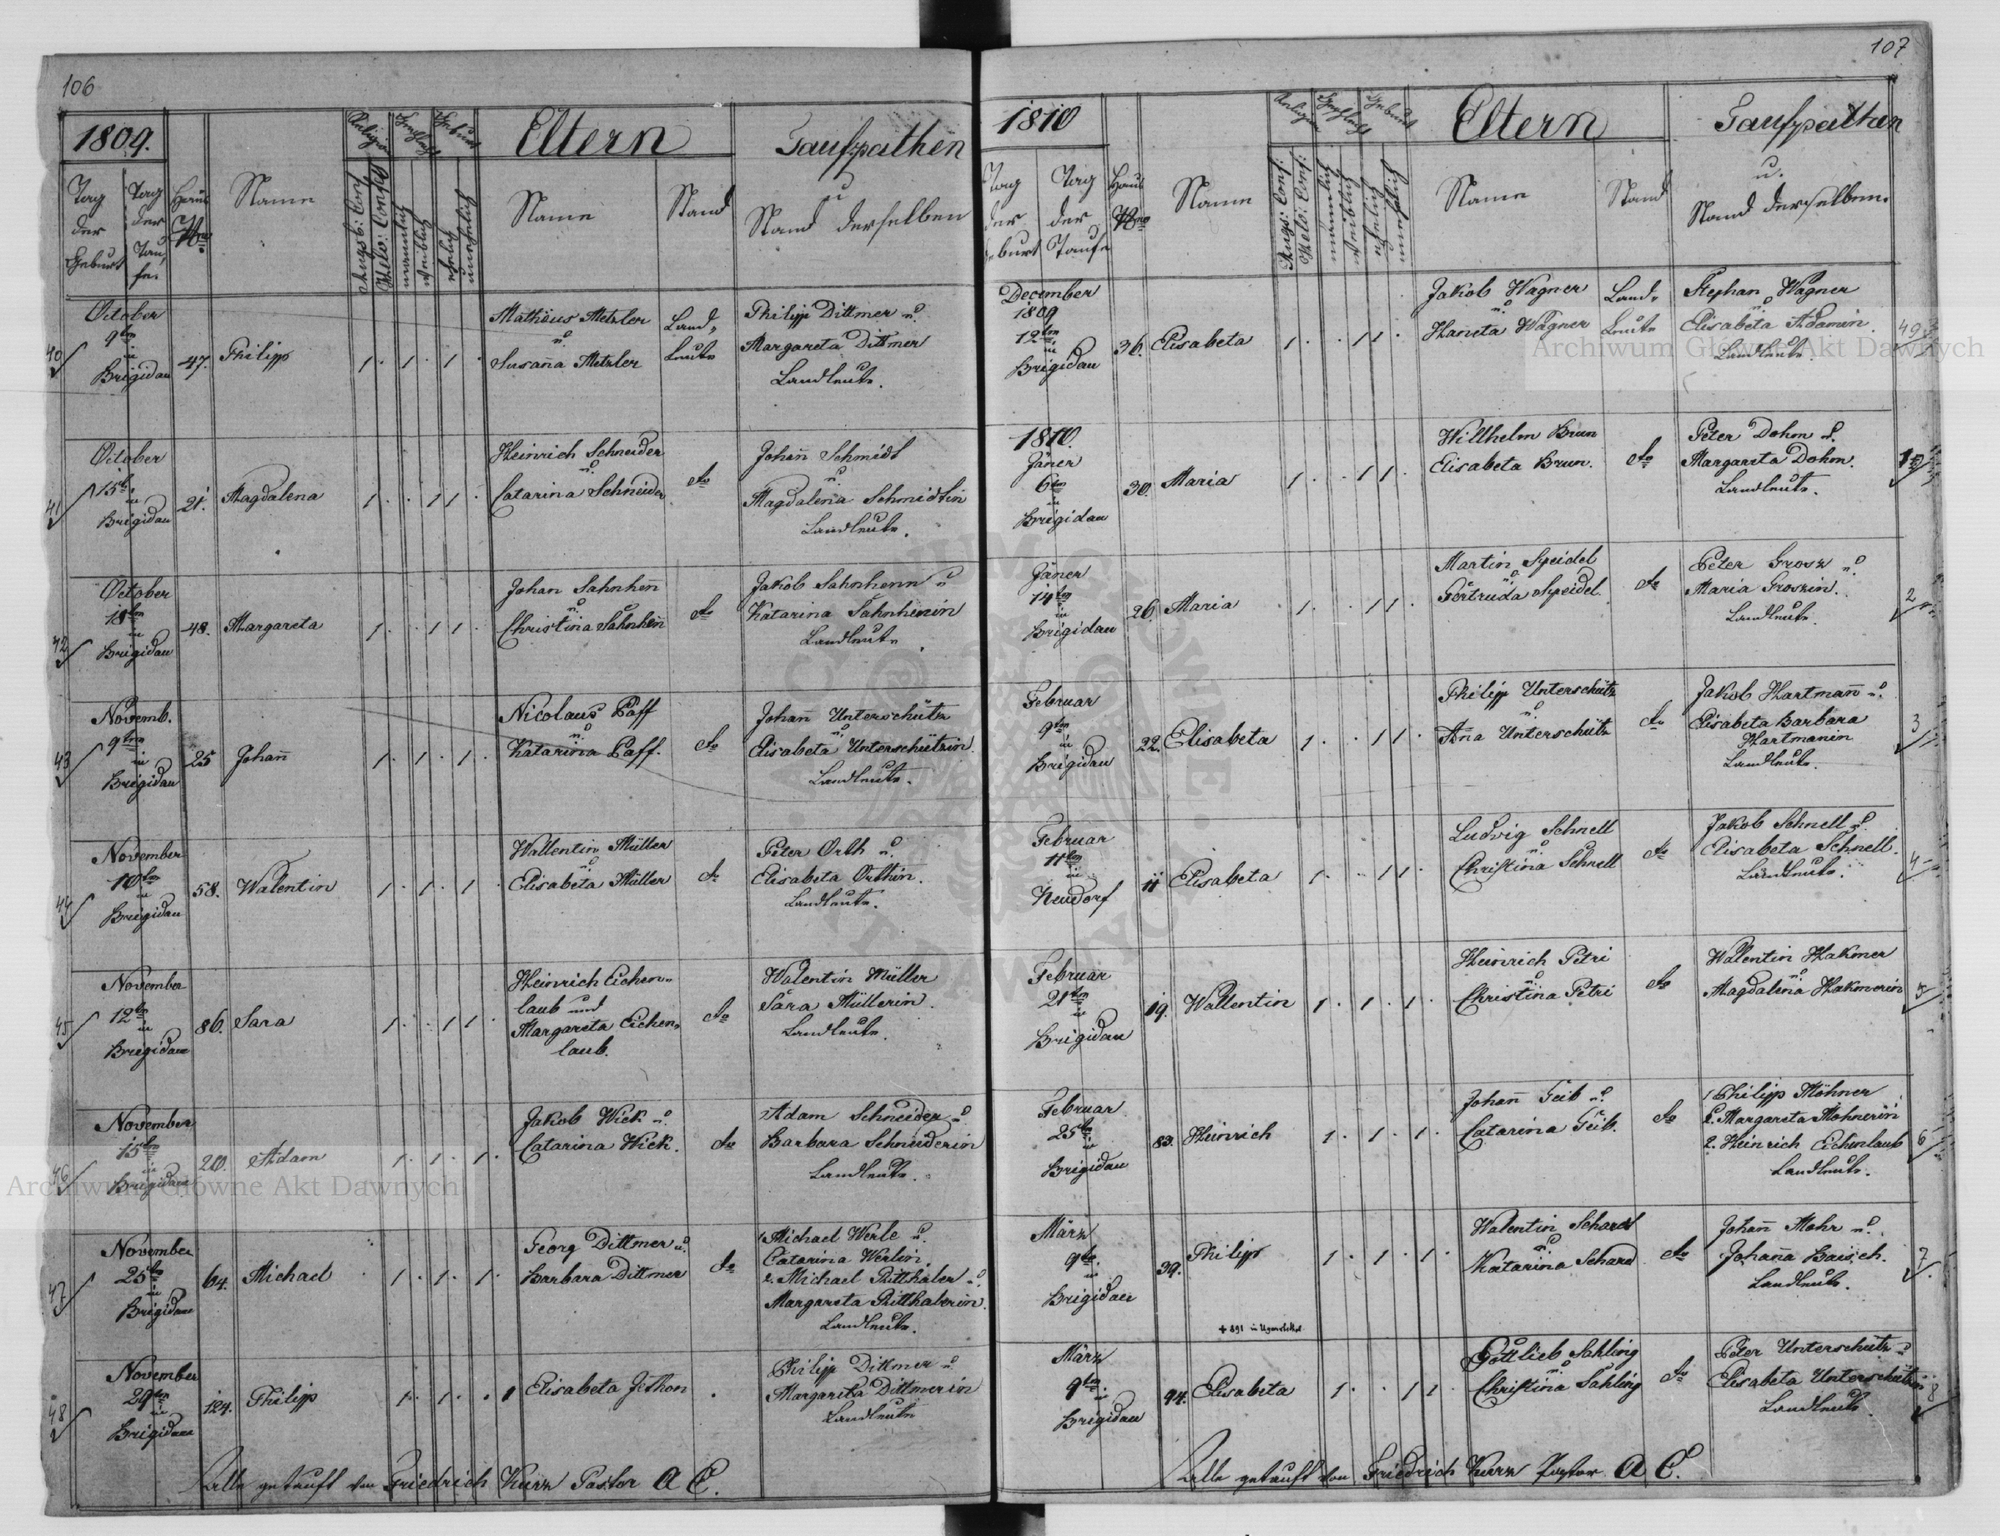 106
1809.
Religion
Geschlecht
Geburt
Eltern
Taufpathen
u
Stand derselben
Tag
der
Geburt
Tag
der
Tau,
fe.
Haus
Nro
Name
Augsb: Conf
Helv: Conf
männlich
weiblich
ehelich
unehelich
Name
Stand
40
October
9ten
in
Brigidau
47.
Philipp
1. 1. 1.
Mathäus Metzler
u.
Susaña Metzler
Land,
Leute
Philipp Dittmer u.
Margareta Dittmer
Landleute.
41
October
15t.
in
Brigidau
21.
Magdalena
1. . 1 1 .
Heinrich Schneider
u.
Catarina Schneider
do
Johañ Schmidt
u.
Magdalena Schmidtin
Landleute.
42
October
18ten
in
Brigidau
48.
Margareta
1. . 1 1 .
Johan Sahnheñ
u.
Christina Sahnheñ
do
Jakob Sahnhenn u
Katarina Sahnhenin
Landleute
43
Novemb.
9ten
in
Brigidau
25
Johañ
1. 1. 1.
Nicolaus Paff
u.
Katarina Paff.
do
Johañ Unterschütz
u.
Elisabeta Unterschützin.
Landleute.
44
November
10ten
in
Brigidau
58.
Walentin
1. 1. 1.
Wallentin Müller
u.
Elisabeta Müller
do
Peter Orth u.
Elisabeta Orthin.
Landleute.
45
November
12ten
in
Brigidau
86.
Sara
1. . 1 1 .
Heinrich Eichen,
laub und
Margareta Eichen,
laub.
do
Walentin Müller
Sara Müllerin.
Landleute
46
November
15ten
in
Brigidau
20.
Adam
1. 1. 1.
Jakob Wick u.
Catarina Wick.
do
Adam Schneider u
Barbara Schneiderin
Landleute.
47
November
25ten
in
Brigidau
64.
Michael
1. 1. 1.
Georg Dittmer u.
Barbara Dittmer
do
1 Michael Werle u.
Catarina Werlin,
2. Michael Ritthaler u
Margareta Ritthalerin.
Landleute.
48
November
29ten
in
Brigidau
124.
Philipp
1. 1. . 1
Philipp Dittmer u
Margareta Dittmerin
Landleute
Alle getauft von Friedrich Kurz Pastor A C.
107
1810
Religion
Geschlecht
Geburt
Eltern
Taufpathen
u.
Stand derselben.
Tag
der
Geburt
Tag
der
Taufe
Haus
Nro
Name
Augs: Conf:
Helv: Conf:
männlich
weiblich
ehelich
unehelich
Name
Stand
December
1809
12ten
in
Brigidau
36.
Elisabeta
1. . 1 1 .
Jakob Wagner
u
Haneta Wagner
Land,
Leute
Stephan Wagner
u
Elisabeta Adamin.
Landleute.
49
1810.
Jäner
6ten
in
Brigidau
30.
Maria
1. . 1 1 .
Willhelm Brun
Elisabeta Brun.
do
Peter Dohm u.
Margareta Dohm.
Landleute.
1
Jäner
14ten
in
Brigidau
26.
Maria
1. . 1 1 .
Martin Speidel
u
Gertruda Speidel.
do
Peter Grosz u.
Maria Groszin.
Landleute.
2
Februar
9ten
in
Brigidau
22.
Elisabeta
1. . 1 1 .
Philipp Unterschütz
u.
Aña Unterschütz
do
Jakob Hartmañ u.
Elisabeta Barbara
Hartmanin
Landleute.
3
Februar
11ten
in
Neudorf
11
Elisabeta
1. . 1 1 .
Ludvig Schnell
u
Christina Schnell
do
Jakob Schnell u.
Elisabeta Schnell.
Landleute.
4
Februar
21ten
in
Brigidau
19.
Wallentin
1. 1. 1.
Heinrich Petri
u
Christina Petri
do
Walentin Hakmer
u
Magdalena Hakmerin
5
Februar
25ten
in
Brigidau
83.
Heinrich
1. 1. 1.
Johañ Geib u.
Catarina Geib.
do
1 Philipp Möhner
u. Margareta Mohnerin
2. Heinrich Eichenlaub
Landleute.
6
März
9ten
in
Brigidau
39.
Philipp
1. 1. 1.
Walentin Schard
u
Katarina Schard
do
Johañ Mohr u.
Johaña Baisch.
Landleute.
7
März
9ten
in
Brigidau
94.
Elisabeta
1. . 1 1 .
Gottlieb Sahling
u
Christina Sahling
do
Peter Unterschütz u
Elisabeta Unterschützin
Landleute.
8
Alle getauft von Friedrich Kurz Pastor A C.
Archiwum Główne Akt Dawnych
Archiwum Główne Akt Dawnych